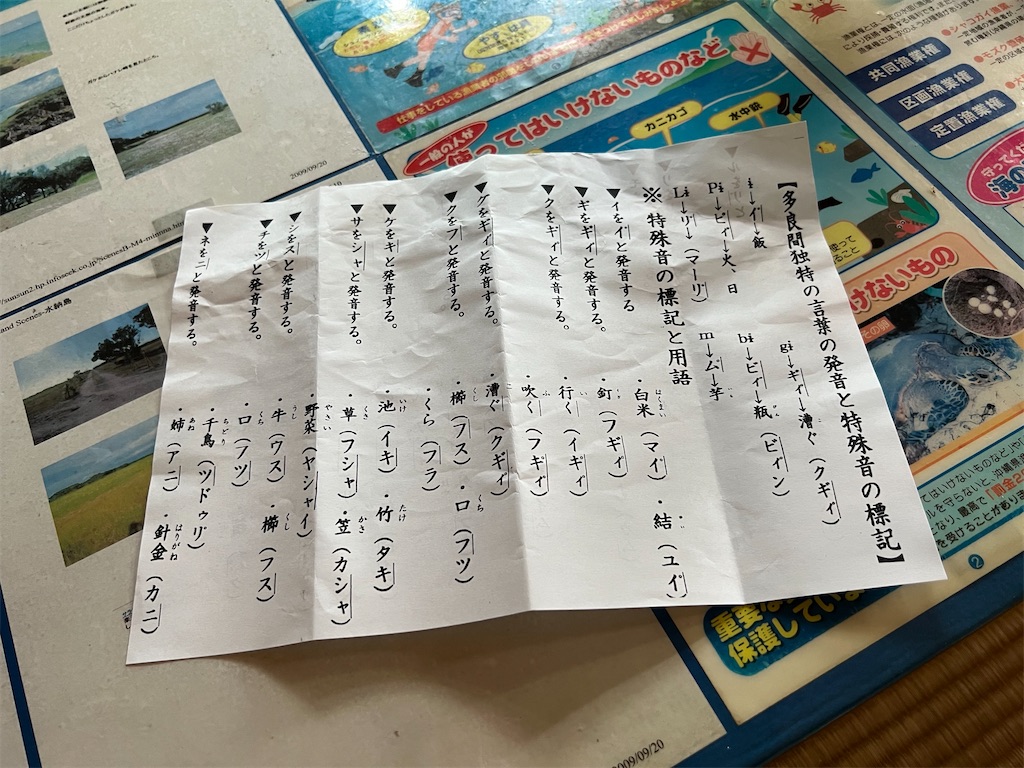 【多良間独特の言葉の発音と特殊音の標記】
ï→イ゜→飯
gï→ギィ→漕ぐ(クギィ)
Pï→ピィ→火、日
bï→ビィ→瓶(ビィン)
Lï→リ→(マーリ)
m→ム→芋
※特殊音の標記と用語
▼イをイ゜と発音する
・白米(マイ゜)
・結(ユイ゜)
▼ギをギィと発音する。
・釘(フギィ)
・行く(イギィ)
▼クをギィと発音する。
・吹く(フギィ)
▼グをギィと発音する。
・漕ぐ(クギィ)
▼クをフと発音する。
・櫛(フス)
・口(フツ)
・くら(フラ)
▼ケをキと発音する。
・池(イキ)
・竹(タキ)
▼サをシャと発音する。
・草(フシャ)
・笠(カシャ)
・野菜(ヤシャイ)
▼シをスと発音する。
・牛(ウス)
・櫛(フス)
▼チをツと発音する。
・口(フツ)
・千鳥(ツドゥリ)
▼ネをニと発音する。
・姉(アニ)
・針金(カニ)
2009/09/20
and Scenes-水納島
2009/09/20
仕事をしている漁業者の
一般の人が
使ってはいけないものなど
カニカゴ
水中銃
共同漁業権
区画漁業権
定置漁業権
けないもの
保護してい